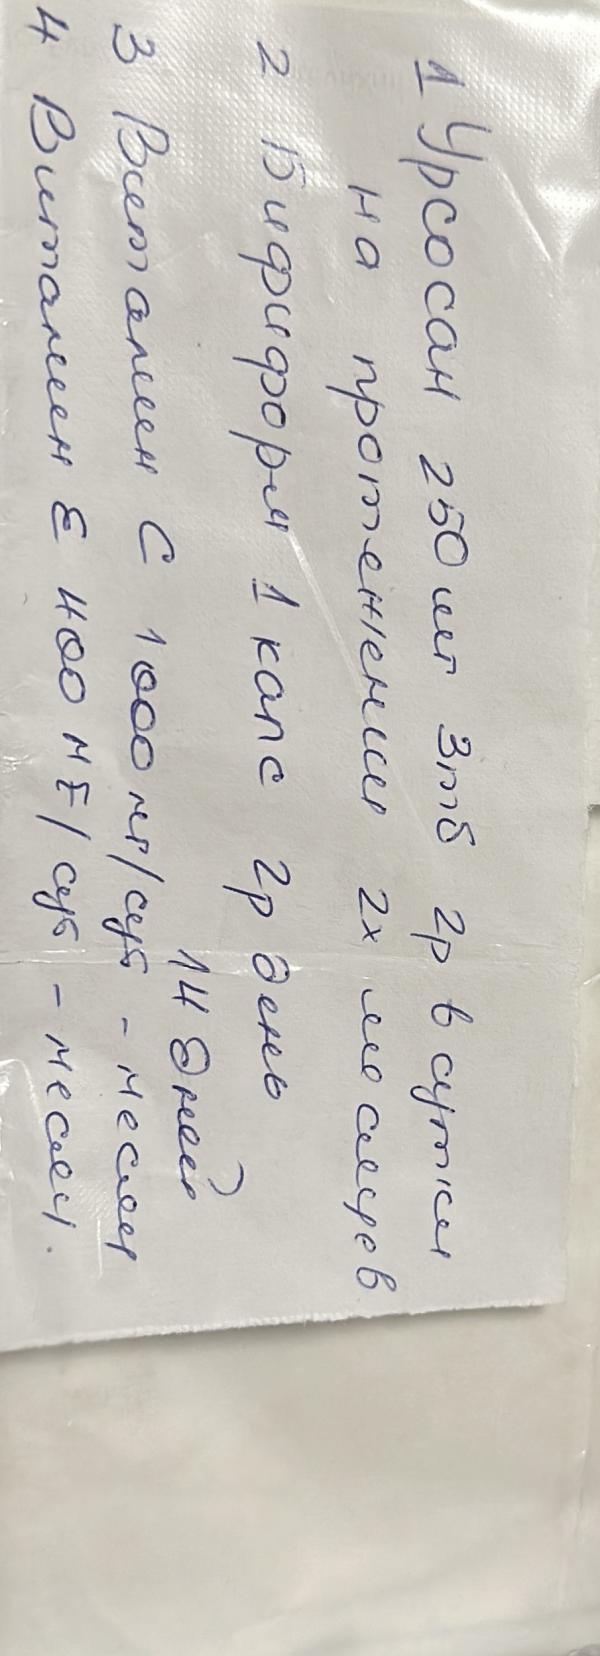 1 Урсосан 250 мг 3тб 2р в сутки
на протяжении 2х месяцев
2 Бифиформ 1 капс 2р день
14 дней
3 Витамин С 1000 мг/сут - месяц
4 Витамин Е 400 МЕ/сут - месяц.